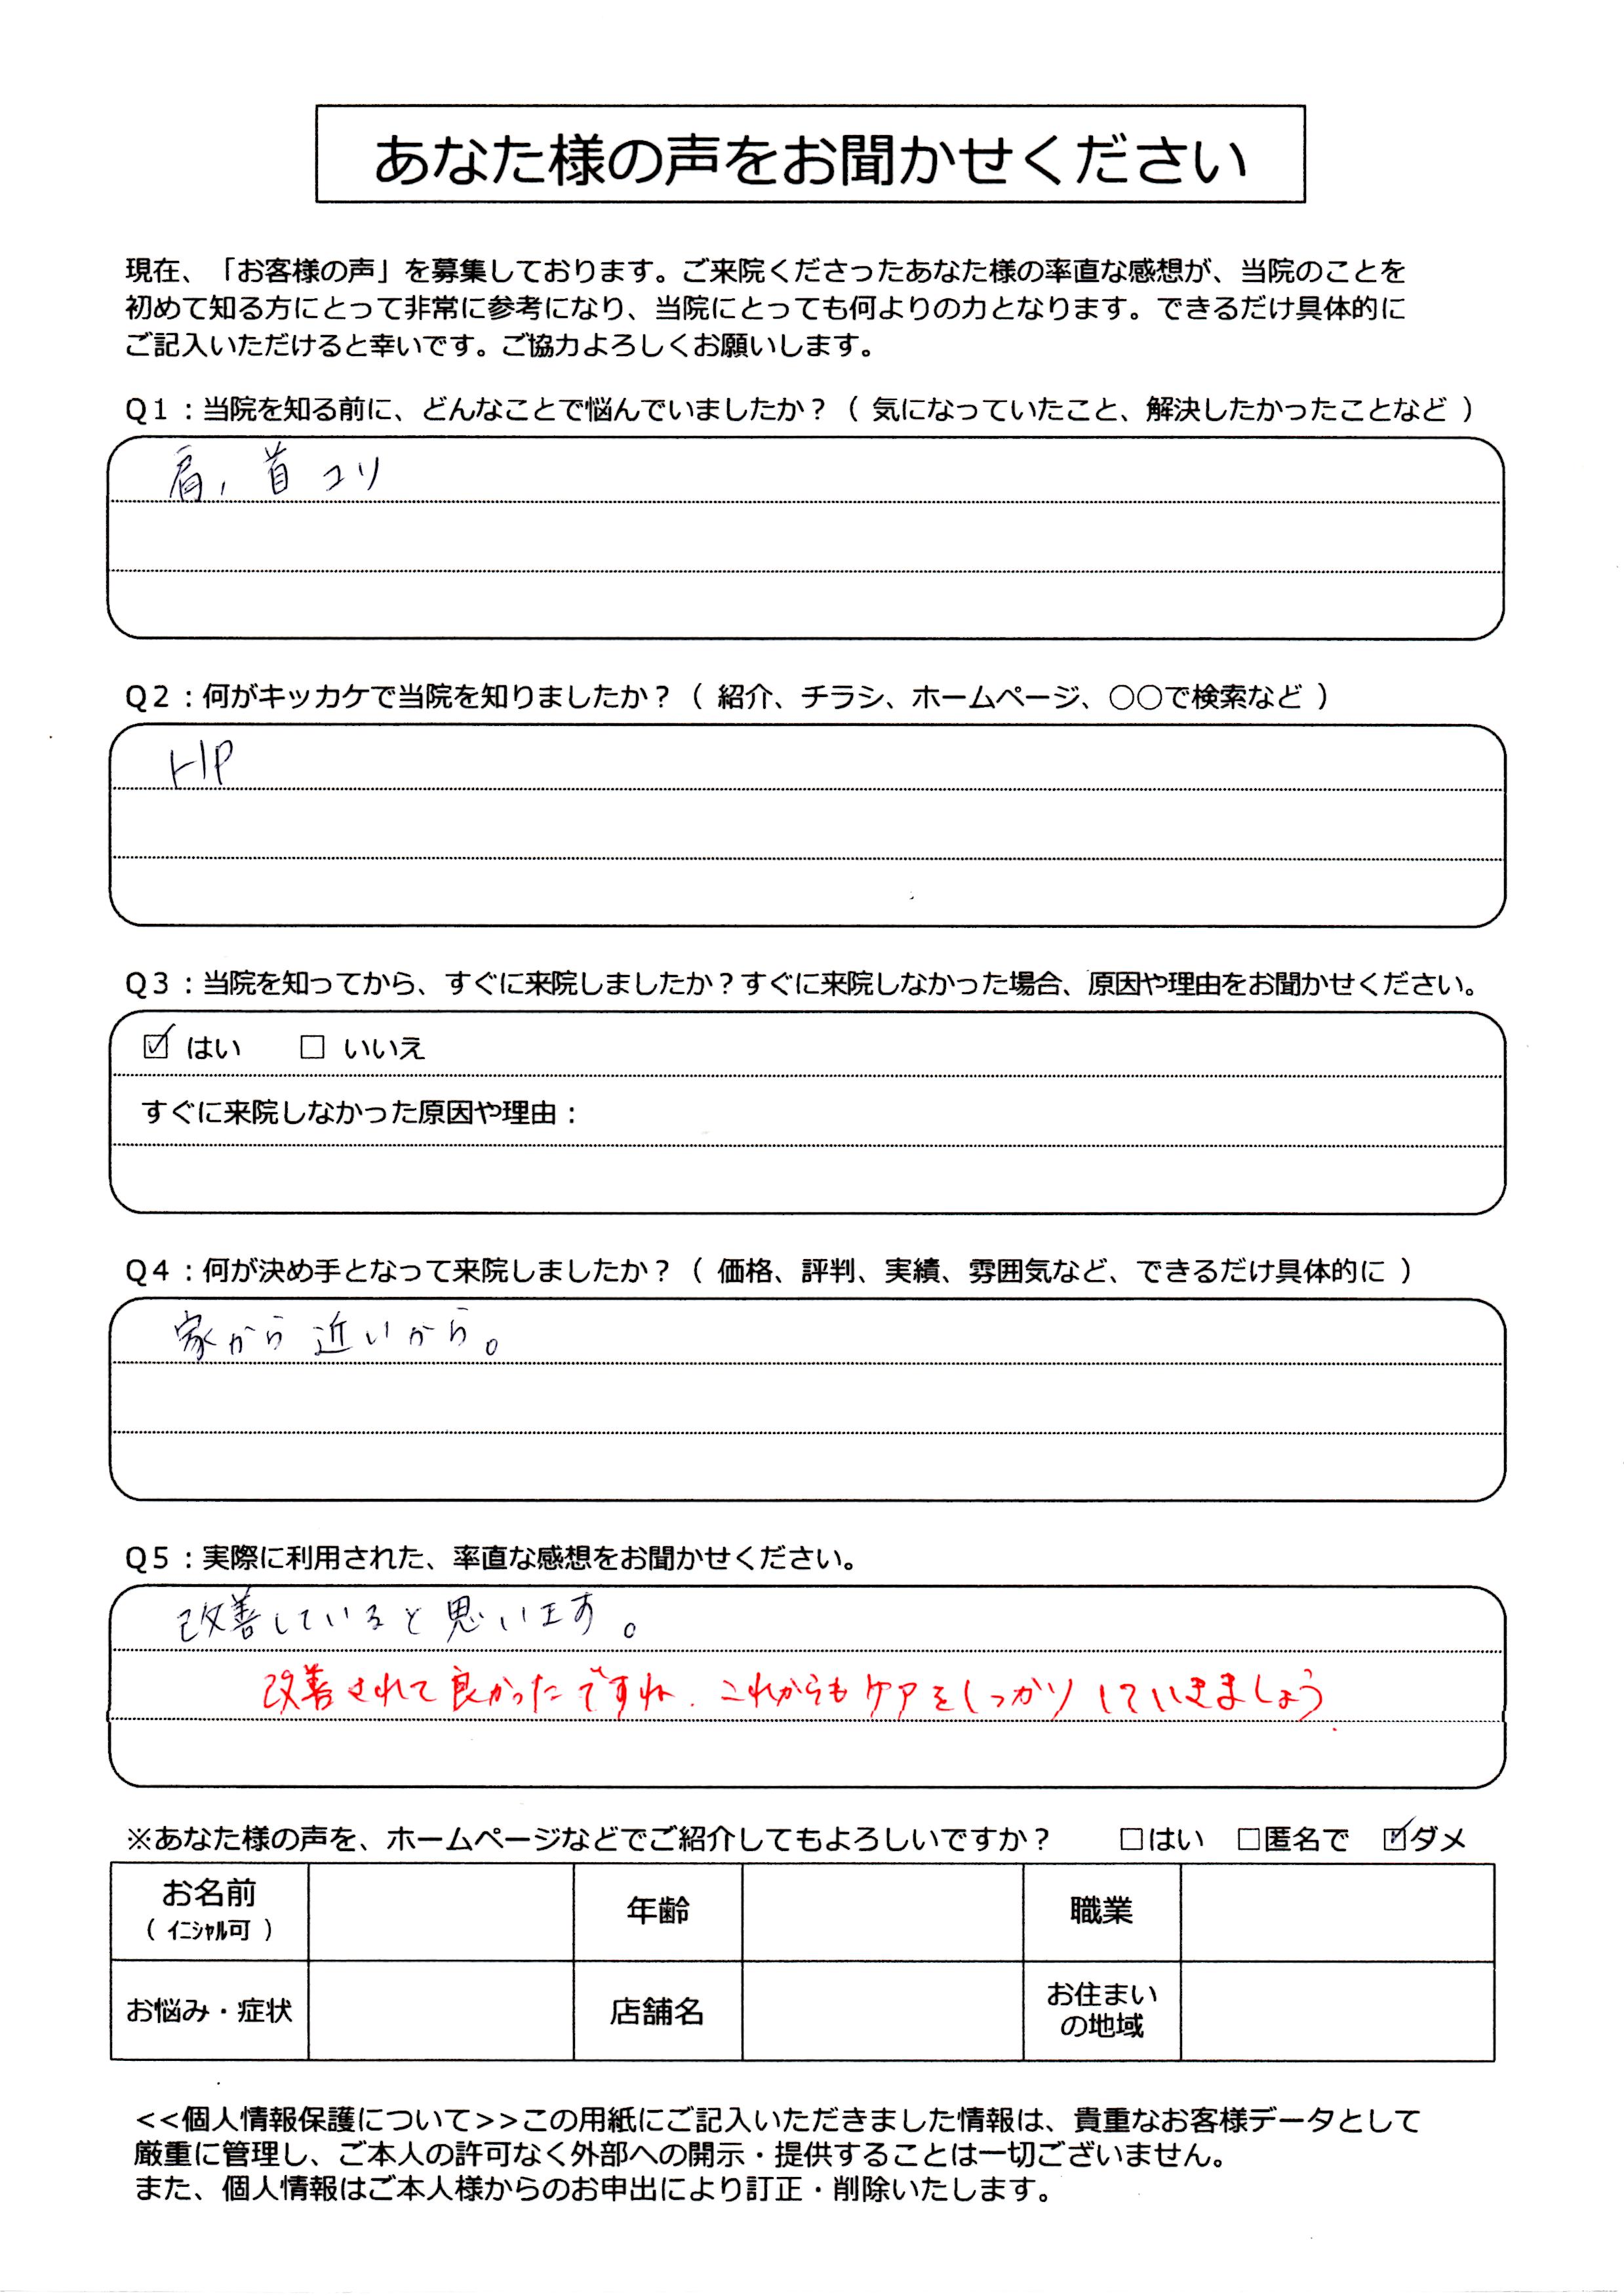 あなた様の声をお聞かせください
現在、「お客様の声」を募集しております。ご来院くださったあなた様の率直な感想が、当院のことを
初めて知る方にとって非常に参考になり、当院にとっても何よりの力となります。できるだけ具体的に
ご記入いただけると幸いです。ご協力よろしくお願いします。
Q1：当院を知る前に、どんなことで悩んでいましたか？（ 気になっていたこと、解決したかったことなど ）
肩，首コリ
Q2：何がキッカケで当院を知りましたか？（ 紹介、チラシ、ホームページ、○○で検索など ）
HP
Q3：当院を知ってから、すぐに来院しましたか？すぐに来院しなかった場合、原因や理由をお聞かせください。
☑ はい □ いいえ
すぐに来院しなかった原因や理由：
Q4：何が決め手となって来院しましたか？（ 価格、評判、実績、雰囲気など、できるだけ具体的に ）
家から近いから。
Q5：実際に利用された、率直な感想をお聞かせください。
改善していると思います。
改善されて良かったですね．これからもケアをしっかりしていきましょう．
※あなた様の声を、ホームページなどでご紹介してもよろしいですか？ □はい □匿名で ☑ダメ
お名前 年齢 職業
（ ｲﾆｼｬﾙ可 ）
お悩み・症状 店舗名 お住まい
の地域
<<個人情報保護について>>この用紙にご記入いただきました情報は、貴重なお客様データとして
厳重に管理し、ご本人の許可なく外部への開示・提供することは一切ございません。
また、個人情報はご本人様からのお申出により訂正・削除いたします。